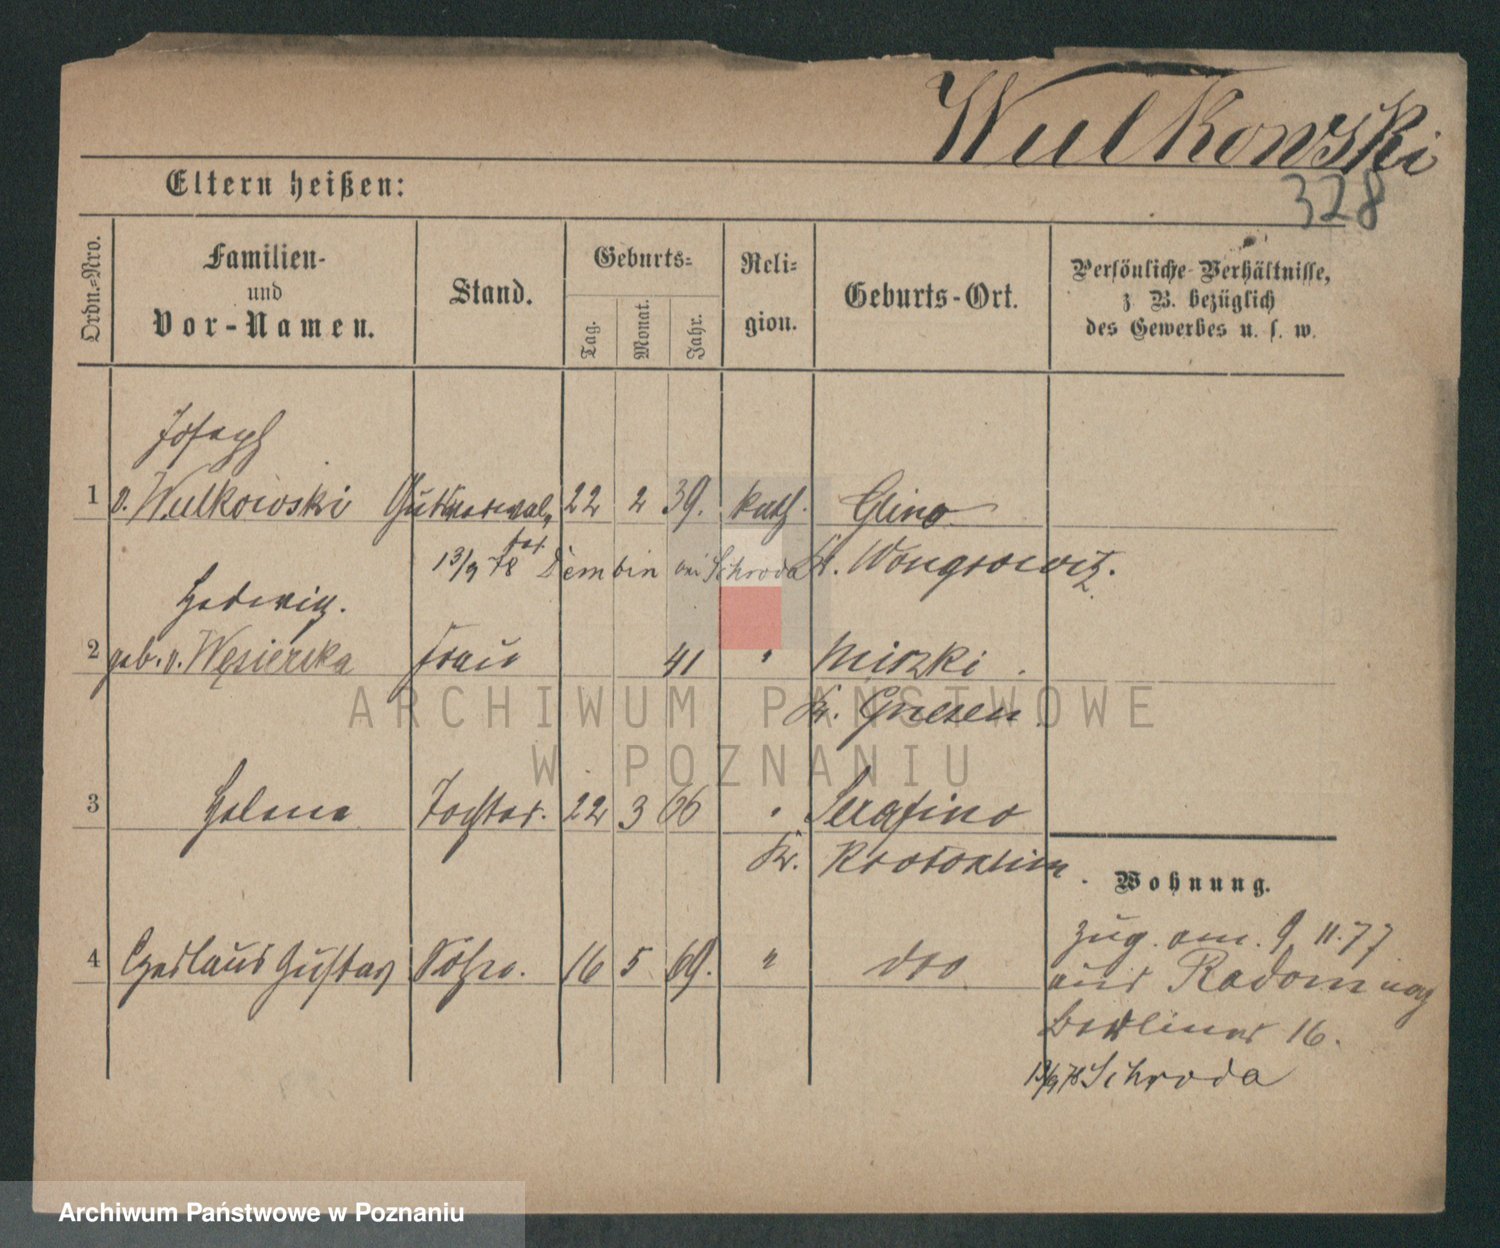 Wulkowski
328
Eltern heißen:
Ordn.=Nro.
Familien-
und
Vor-Namen.
Stand.
Geburts=
Tag.
Monat.
Jahr.
Reli=
gion.
Geburts-Ort.
Persönliche Verhältnisse,
z. B. bezüglich
des Gewerbes u. s. w.
Joseph
1 v. Wulkowski Gutsverwal, 22 2 39. kath. Glino
ter
13/9 78 Dembin Schroda Kr. Wongrowitz.
Hedwig.
2 geb. v. Węsierska Frau 41 " Mirzki
Kr. Gnesen
3 Helena Tochter. 22 3 66 " Serafino
Kr. Krotoschin
4 Czeslaus Gustav Sohn. 16 5 69. " dto
Wohnung.
zug. am. 9 11.77
aus Radom nach
Berliner 16.
13/9 78 Schroda
ARCHIWUM PAŃSTWOWE
W POZNANIU
Archiwum Państwowe w Poznaniu